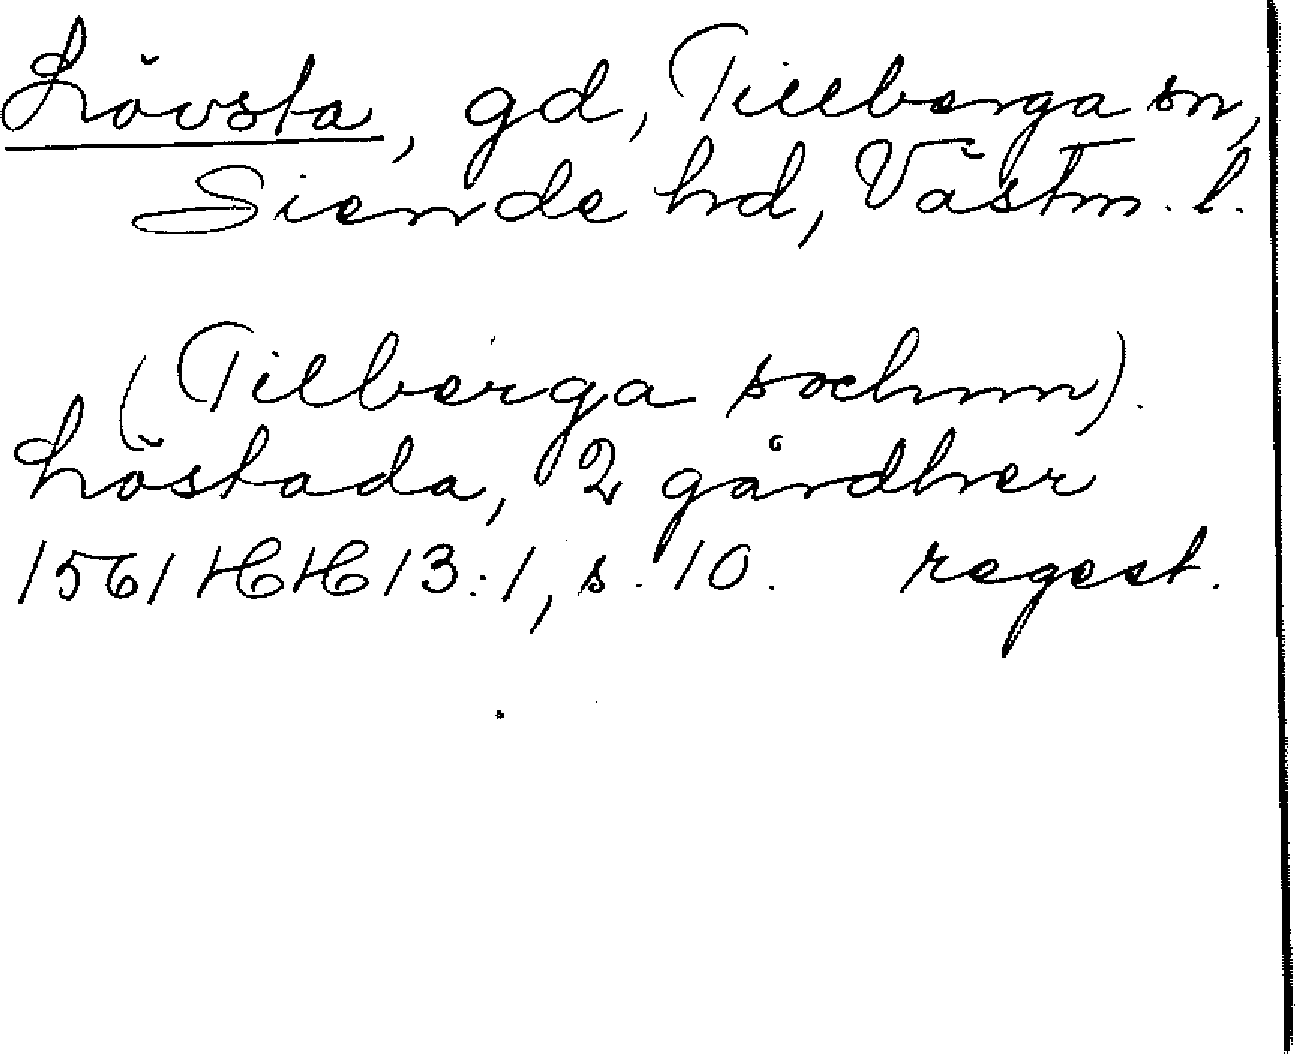 Lövsta, gd, Tillberga sn,
Siende hd, Västm. l.
(Tilberga sochnn).
Löstada, 2 gårdher
1561 HH 13:1, s. 10. regest.